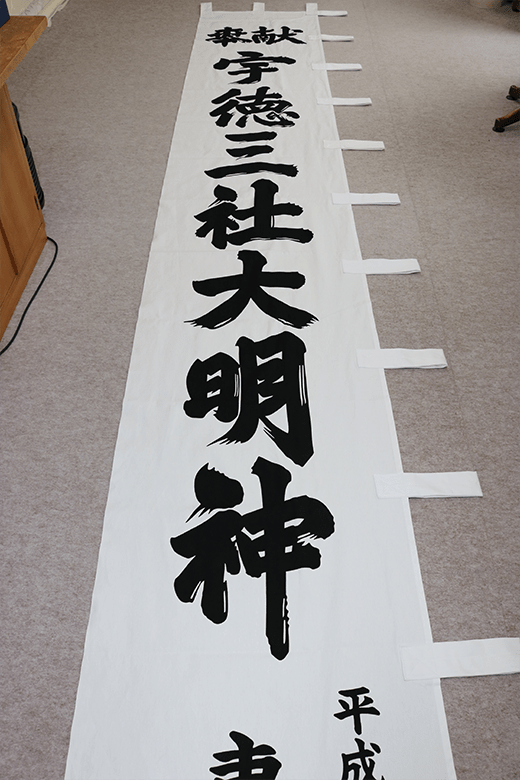 奉献
宇徳三社大明神
平成